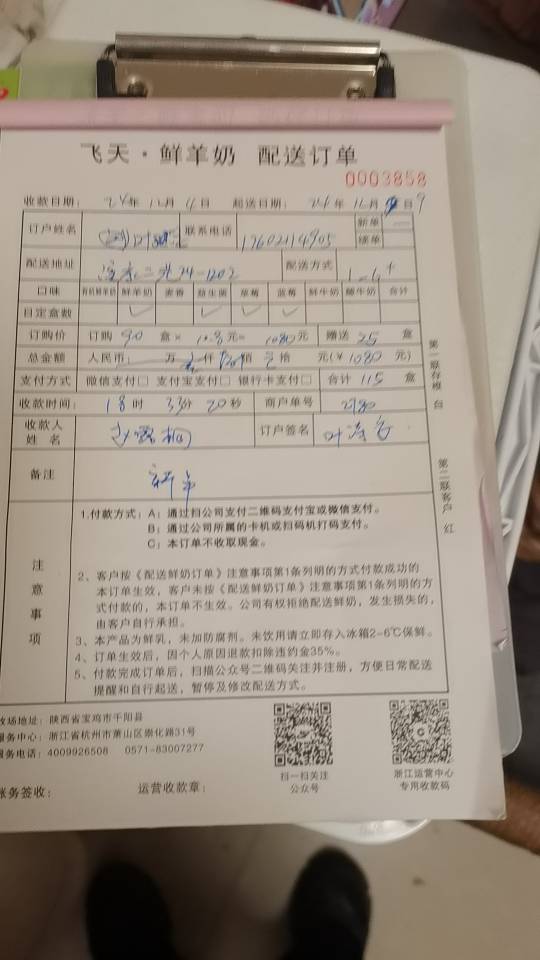 飞天·鲜羊奶 配送订单
0003858
收款日期： 24年 12月 4日 起送日期： 24年 12月 日 9
订户姓名 联系电话 17602114905 新单
续单
配送地址 配送方式
口味 有机鲜羊奶 鲜羊奶 麦香 益生菌 草莓 蓝莓 鲜牛奶 酸牛奶 合计
自定盒数 ✓ ✓ ✓ ✓
订购价 订购 90 盒× 元= 1080元 赠送 25 盒
总金额 人民币： 万 仟 佰 拾 元(￥ 1080 元)
支付方式 微信支付□ 支付宝支付□ 银行卡支付□ 合计 115 盒
收款时间： 18时 33分 20秒 商户单号
收款人
姓 名 订户签名
备注 新单
注意事项
1.付款方式：A：通过扫公司支付二维码支付宝或微信支付。
B：通过公司所属的卡机或扫码机打码支付。
C：本订单不收取现金。
2、客户按《配送鲜奶订单》注意事项第1条列明的方式付款成功的
本订单生效，客户未按《配送鲜奶订单》注意事项第1条列明的方
式付款的，本订单不生效。公司有权拒绝配送鲜奶，发生损失的，
由客户自行承担。
3、本产品为鲜乳，未加防腐剂。未饮用请立即存入冰箱2-6℃保鲜。
4、订单生效后，因个人原因退款扣除违约金35%。
5、付款完成订单后，扫描公众号二维码关注并注册，方便日常配送
提醒和自行起送，暂停及修改配送方式。
第一联存根 白
第二联客户 红
牧场地址：陕西省宝鸡市千阳县
服务中心：浙江省杭州市萧山区崇化路31号
服务电话：4009926508 0571-83007277
扫一扫关注
公众号
浙江运营中心
专用收款码
账务签收： 运营收款章：